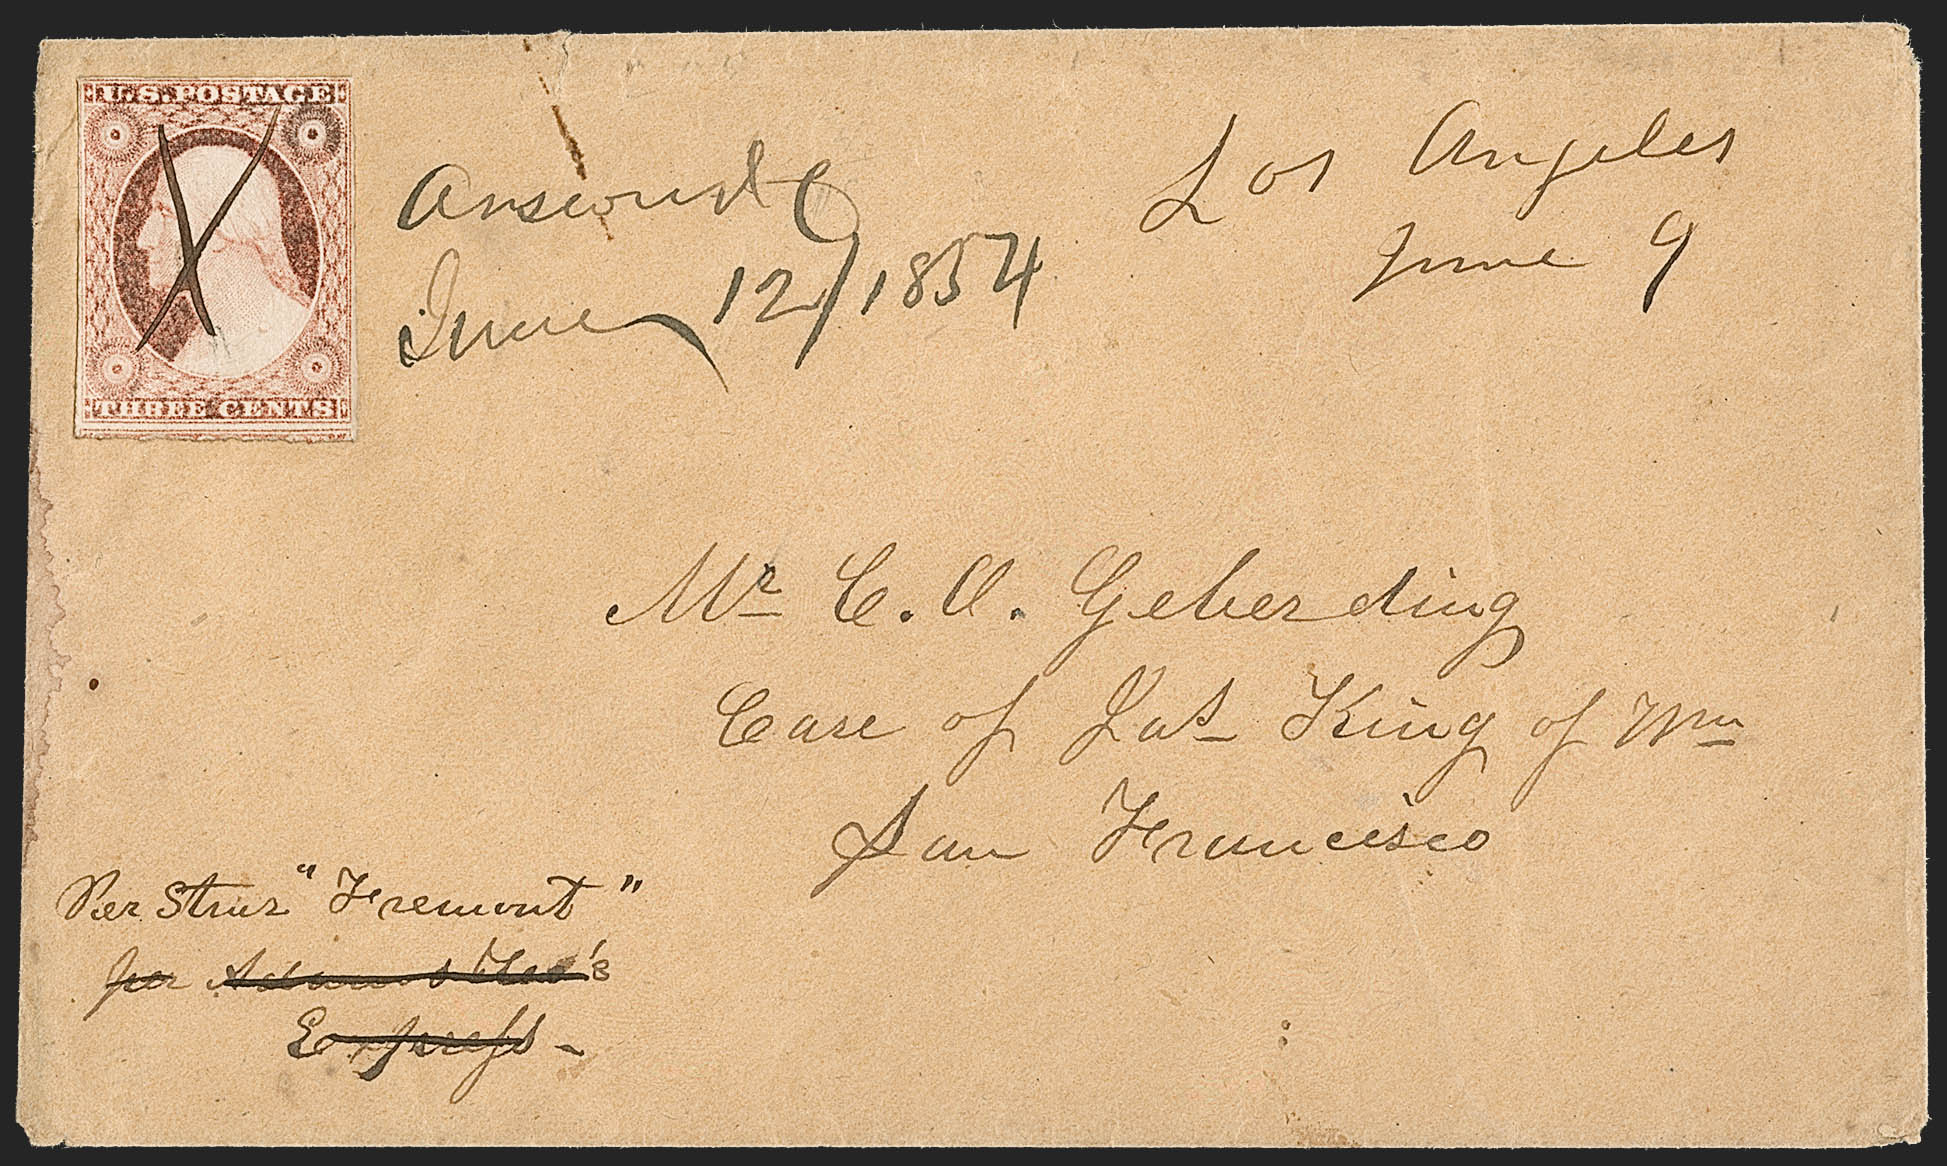 U.S. POSTAGE
THREE CENTS
Answerd
June 12/1854
Los Angeles
June 9
Mr C. A. Geberding
Care of Jas King of Wm
San Francisco
Per Stmr "Fremont"
per Adams & Co's
Express -